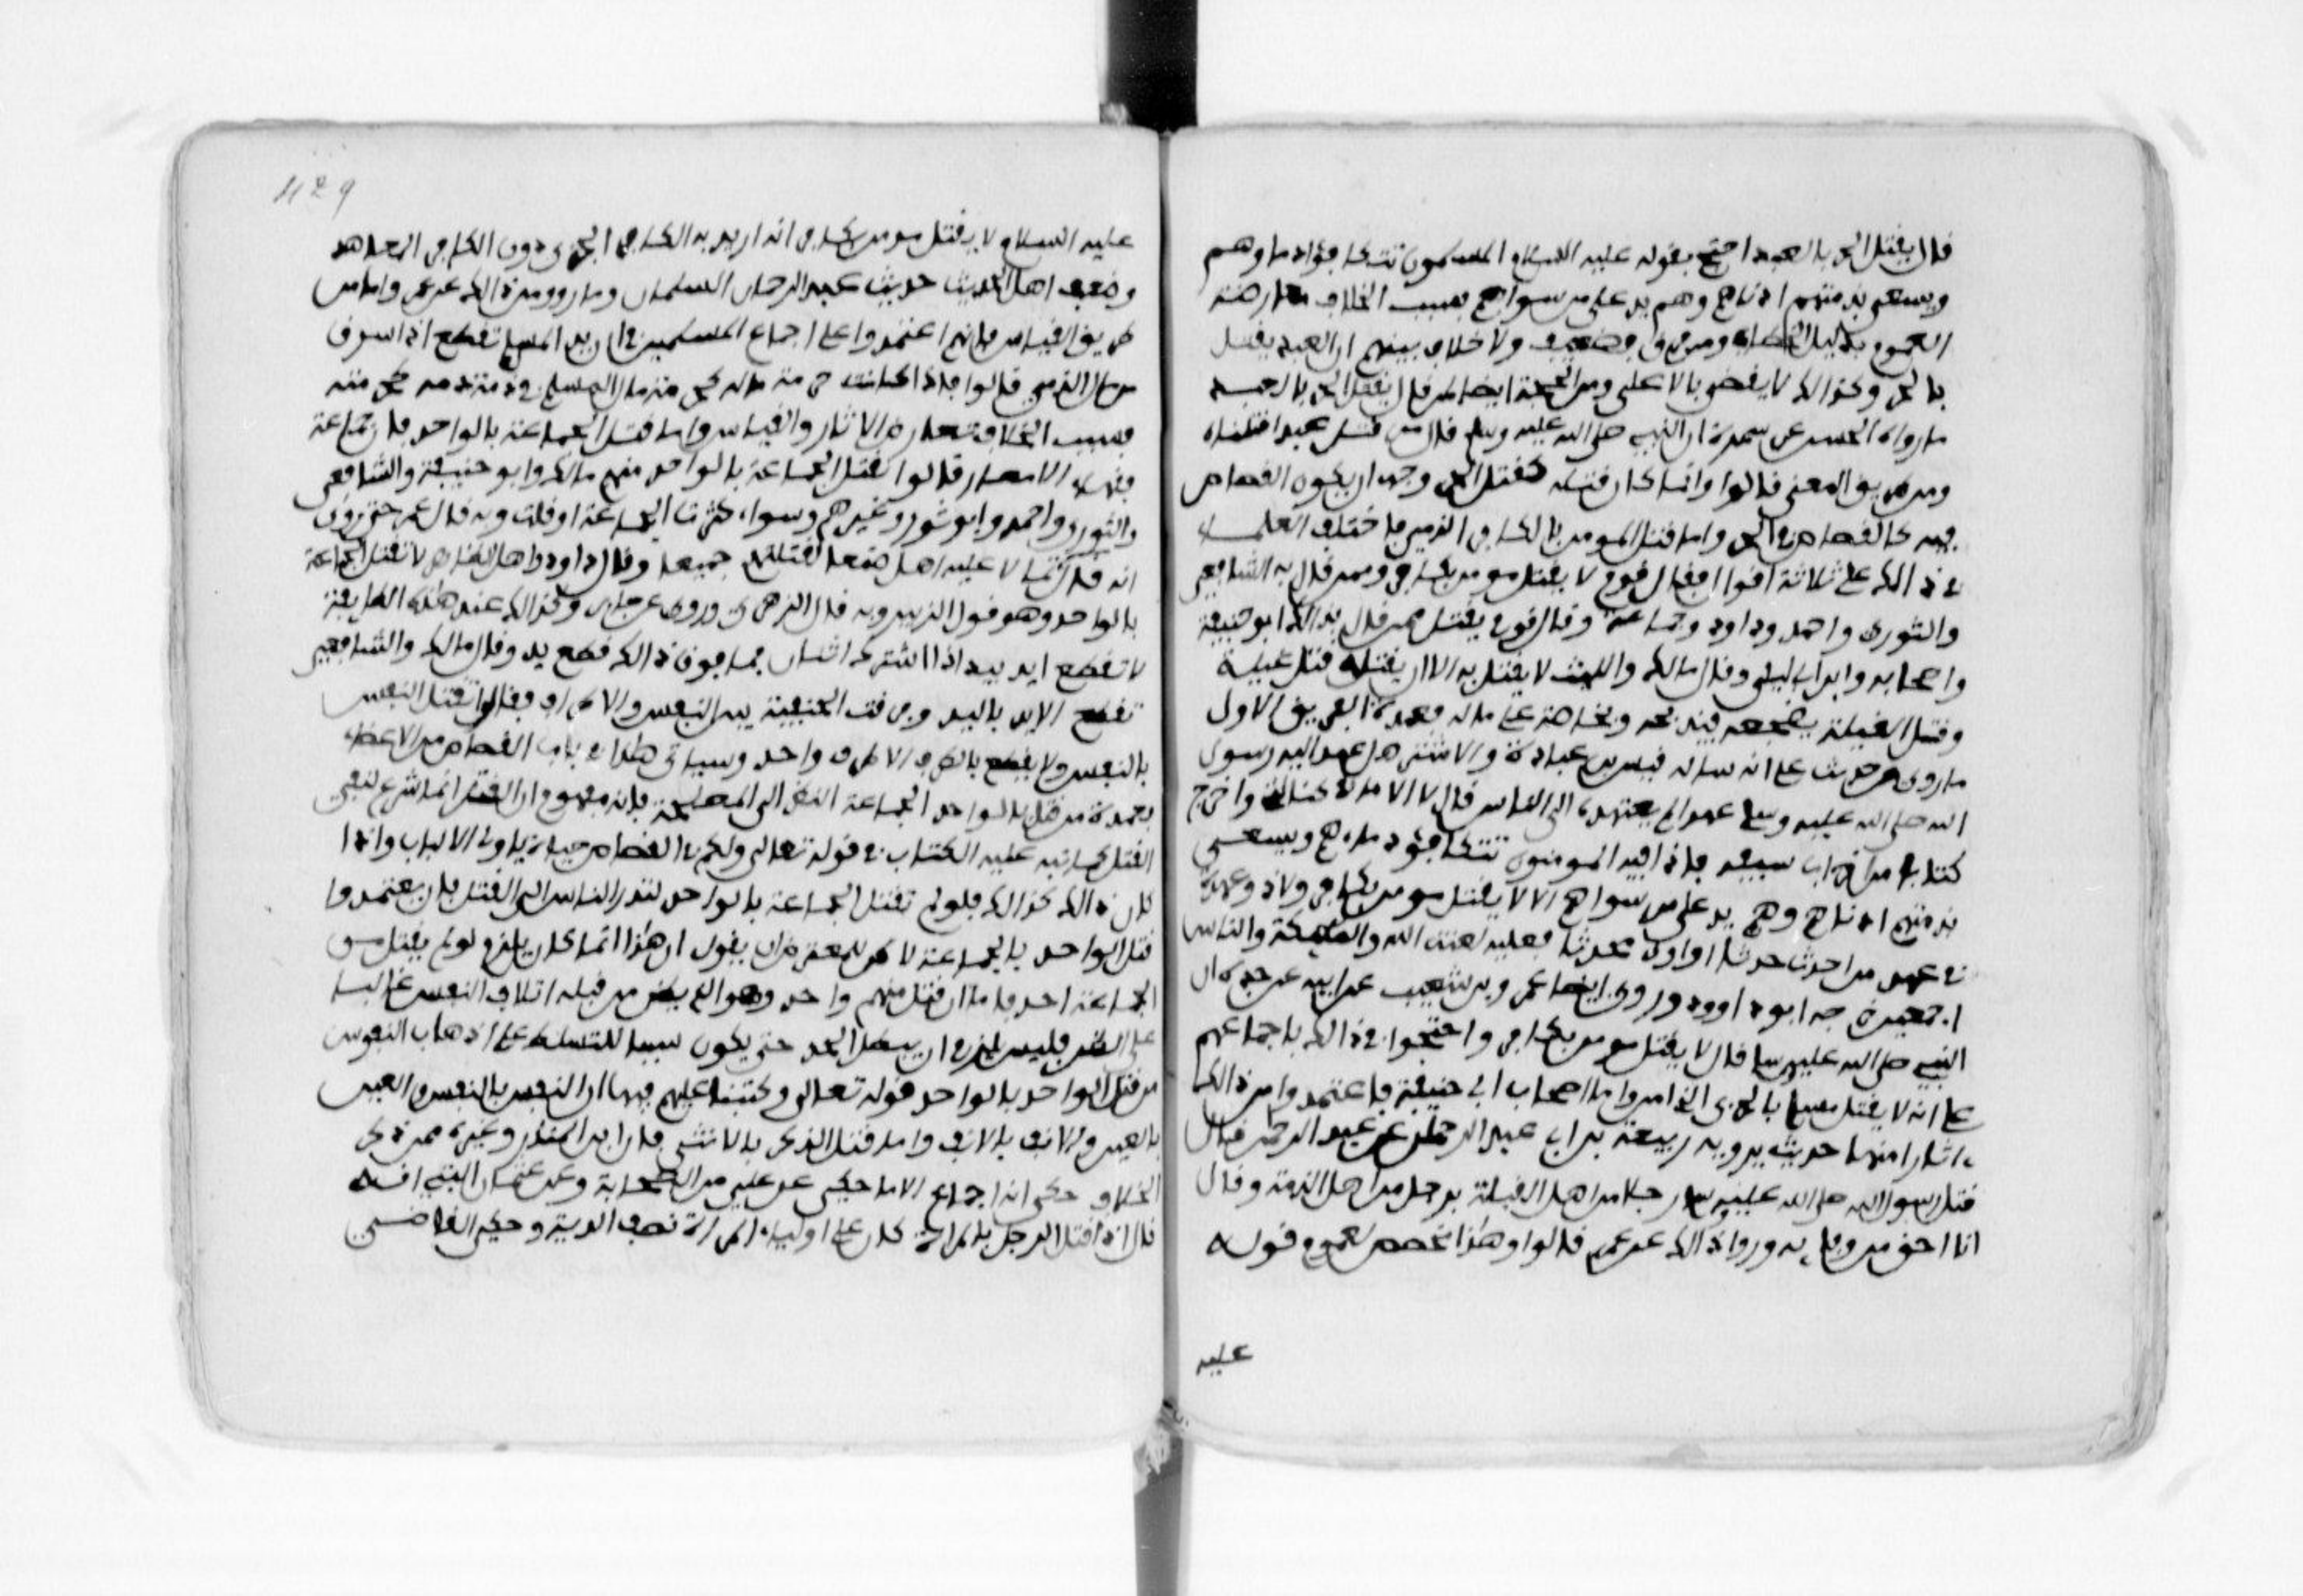 قال يقتل الحر بالعبد احتج بقوله عليه السلام المسلمون تتكافؤ دماوهم
ويسعى بذمتهم ادناهم وهم يد على من سواهم فسبب الخلاف معارضة
العموم بدليل الخطاب ومن فرق فضعيف ولا خلاف بينهم ان العبد يقتل
بالحر وكذالك الانقص بالاعلى ومن الحجة ايضا لمن قال يقتل الحر بالعبد
ما رواه الحسن عن سمرة ان النبيء صلى الله عليه وسلم قال من قتل عبدا قتلناه
ومن طريق المعنى قالوا ولما كان قتله كقتل الحر وجب ان يكون القصاص
فيه كالقصاص في الحر واما قتل المومن بالكافر الذمي فاختلف العلماء
في ذالك على ثلاثة اقوال فقال قوم لا يقتل مومن بكافر وممن قال به الشافعي
والثوري واحمد وداود وجماعة وقال قوم يقتل ممن قال بذالك ابو حنيفة
واصحابه وابن ابي ليلى وقال مالك والليث لا يقتل به الا ان يقتله قتل غيلة
وقتل الغيلة يضجعه فيذبحه وبخاصة على ماله فعمدة الفريق الاول
ما روي من حديث علي انه ساله قيس بن عبادة والاشتر هل عهد اليه رسول
الله صلى الله عليه وسلم عهدا لم يعهده الى الناس قال لا الا ما في كتابي واخرج
كتابا من قراب سيفه فاذا فيه المومنون تتكافؤ دماءهم ويسعى
بذمتهم ادناهم وهم يد على من سواهم الا لا يقتل مومن بكافر ولا ذو عهد
في عهده من احدث حدثا او اوى محدثا فعليه لعنة الله والملايكة والناس
اجمعين خرجه ابو داوود وروي ايضا عمرو بن شعيب عن ابيه عن جده ان
النبيء صلى الله عليه وسلم قال لا يقتل مومن بكافر واحتجوا في ذالك باجماعهم
على انه لا يقتل مسلم بالحربي الذي امن واما اصحاب ابي حنيفة فاعتمدوا في ذالك
ءاثارا منها حديث يرويه ربيعة بن ابي عبد الرحمان عن عبد الرحمن قال
قتل رسول الله صلى الله عليه وسلم رجلا من اهل القبلة برجل من اهل الذمة وقال
انا احق من وفا به ورووا ذالك عن عمر قالوا وهذا مخصص لعموم قوله
عليه
429
عليه السلام لا يقتل مومن بكافر انه اريد به الكافر الحربي دون الكافر المعاهد
وضعف اهل الحديث حديث عبد الرحمان السلماني وما رووا من ذالك عن عمر واما من
طريق القياس فانهم اعتمدوا على اجماع المسلمين في ان يد المسلم تقطع اذا سرق
من مال الذمي قالوا فاذا كانت حرمة ماله كحرمة مال المسلم فحرمة دمه كحرمة
فسبب الخلاف تعارض الاثار والقياس واما قتل الجماعة بالواحد فان جماعة
فقهاء الامصار قالوا تقتل الجماعة بالواحد منهم مالك وابو حنيفة والشافعي
والثوري واحمد وابو ثور وغيرهم وسواء كثرت الجماعة او قلت وبه قال عمر حتى روي
انه قال لو تمالا عليه اهل صنعا لقتلتهم جميعا وقال داود واهل الظاهر لا تقتل الجماعة
بالواحد وهو قول الزبير وبه قال الزهري وروي عن جابر وكذالك عند هذه الطايفة
لا تقطع ايد بيد اذا اشترك اثنان فما فوق ذالك في قطع يد وقال مالك والشافعي
تقطع الايد باليد وفرقت الحنفية بين النفس والاطراف فقالوا تقتل النفس
بالنفس ولا يقطع بالطرف الا طرف واحد وسياتي هذا في باب القصاص من الاعضاء
فعمدة من قتل بالواحد الجماعة النظر الى المصلحة فانه مفهوم ان القتل انما شرع لنفي
القتل كما نبه عليه الكتاب في قوله تعالى ولكم في القصاص حياة ياولي الالباب واذا
كان ذالك كذالك فلو لم تقتل الجماعة بالواحد لتذرع الناس الى القتل بان يعتمدوا
قتل الواحد بالجماعة لاكن للمعترض ان يقول ان هذا انما كان يلزم لو لم يقتل من
الجماعة احد فاما ان قتل منهم واحد وهو الذي يظن من قبله اتلاف النفس غالبا
على الظن فليس يلزم ان يبطل الحد حتى يكون سببا للتسلط على اذهاب النفوس
من قتل الواحد بالواحد قوله تعالى وكتبنا عليهم فيها ان النفس بالنفس والعين
بالعين والانف بالانف واما قتل الذكر بالانثى فان ابن المنذر وغيره ممن ذكر
الخلاف حكى انه اجماع الا ما حكي عن علي من الصحابة وعن عثمان البتي انه
قال اذا قتل الرجل بالمراة كان على اولياء المراة نصف الدية وحكى القاضي